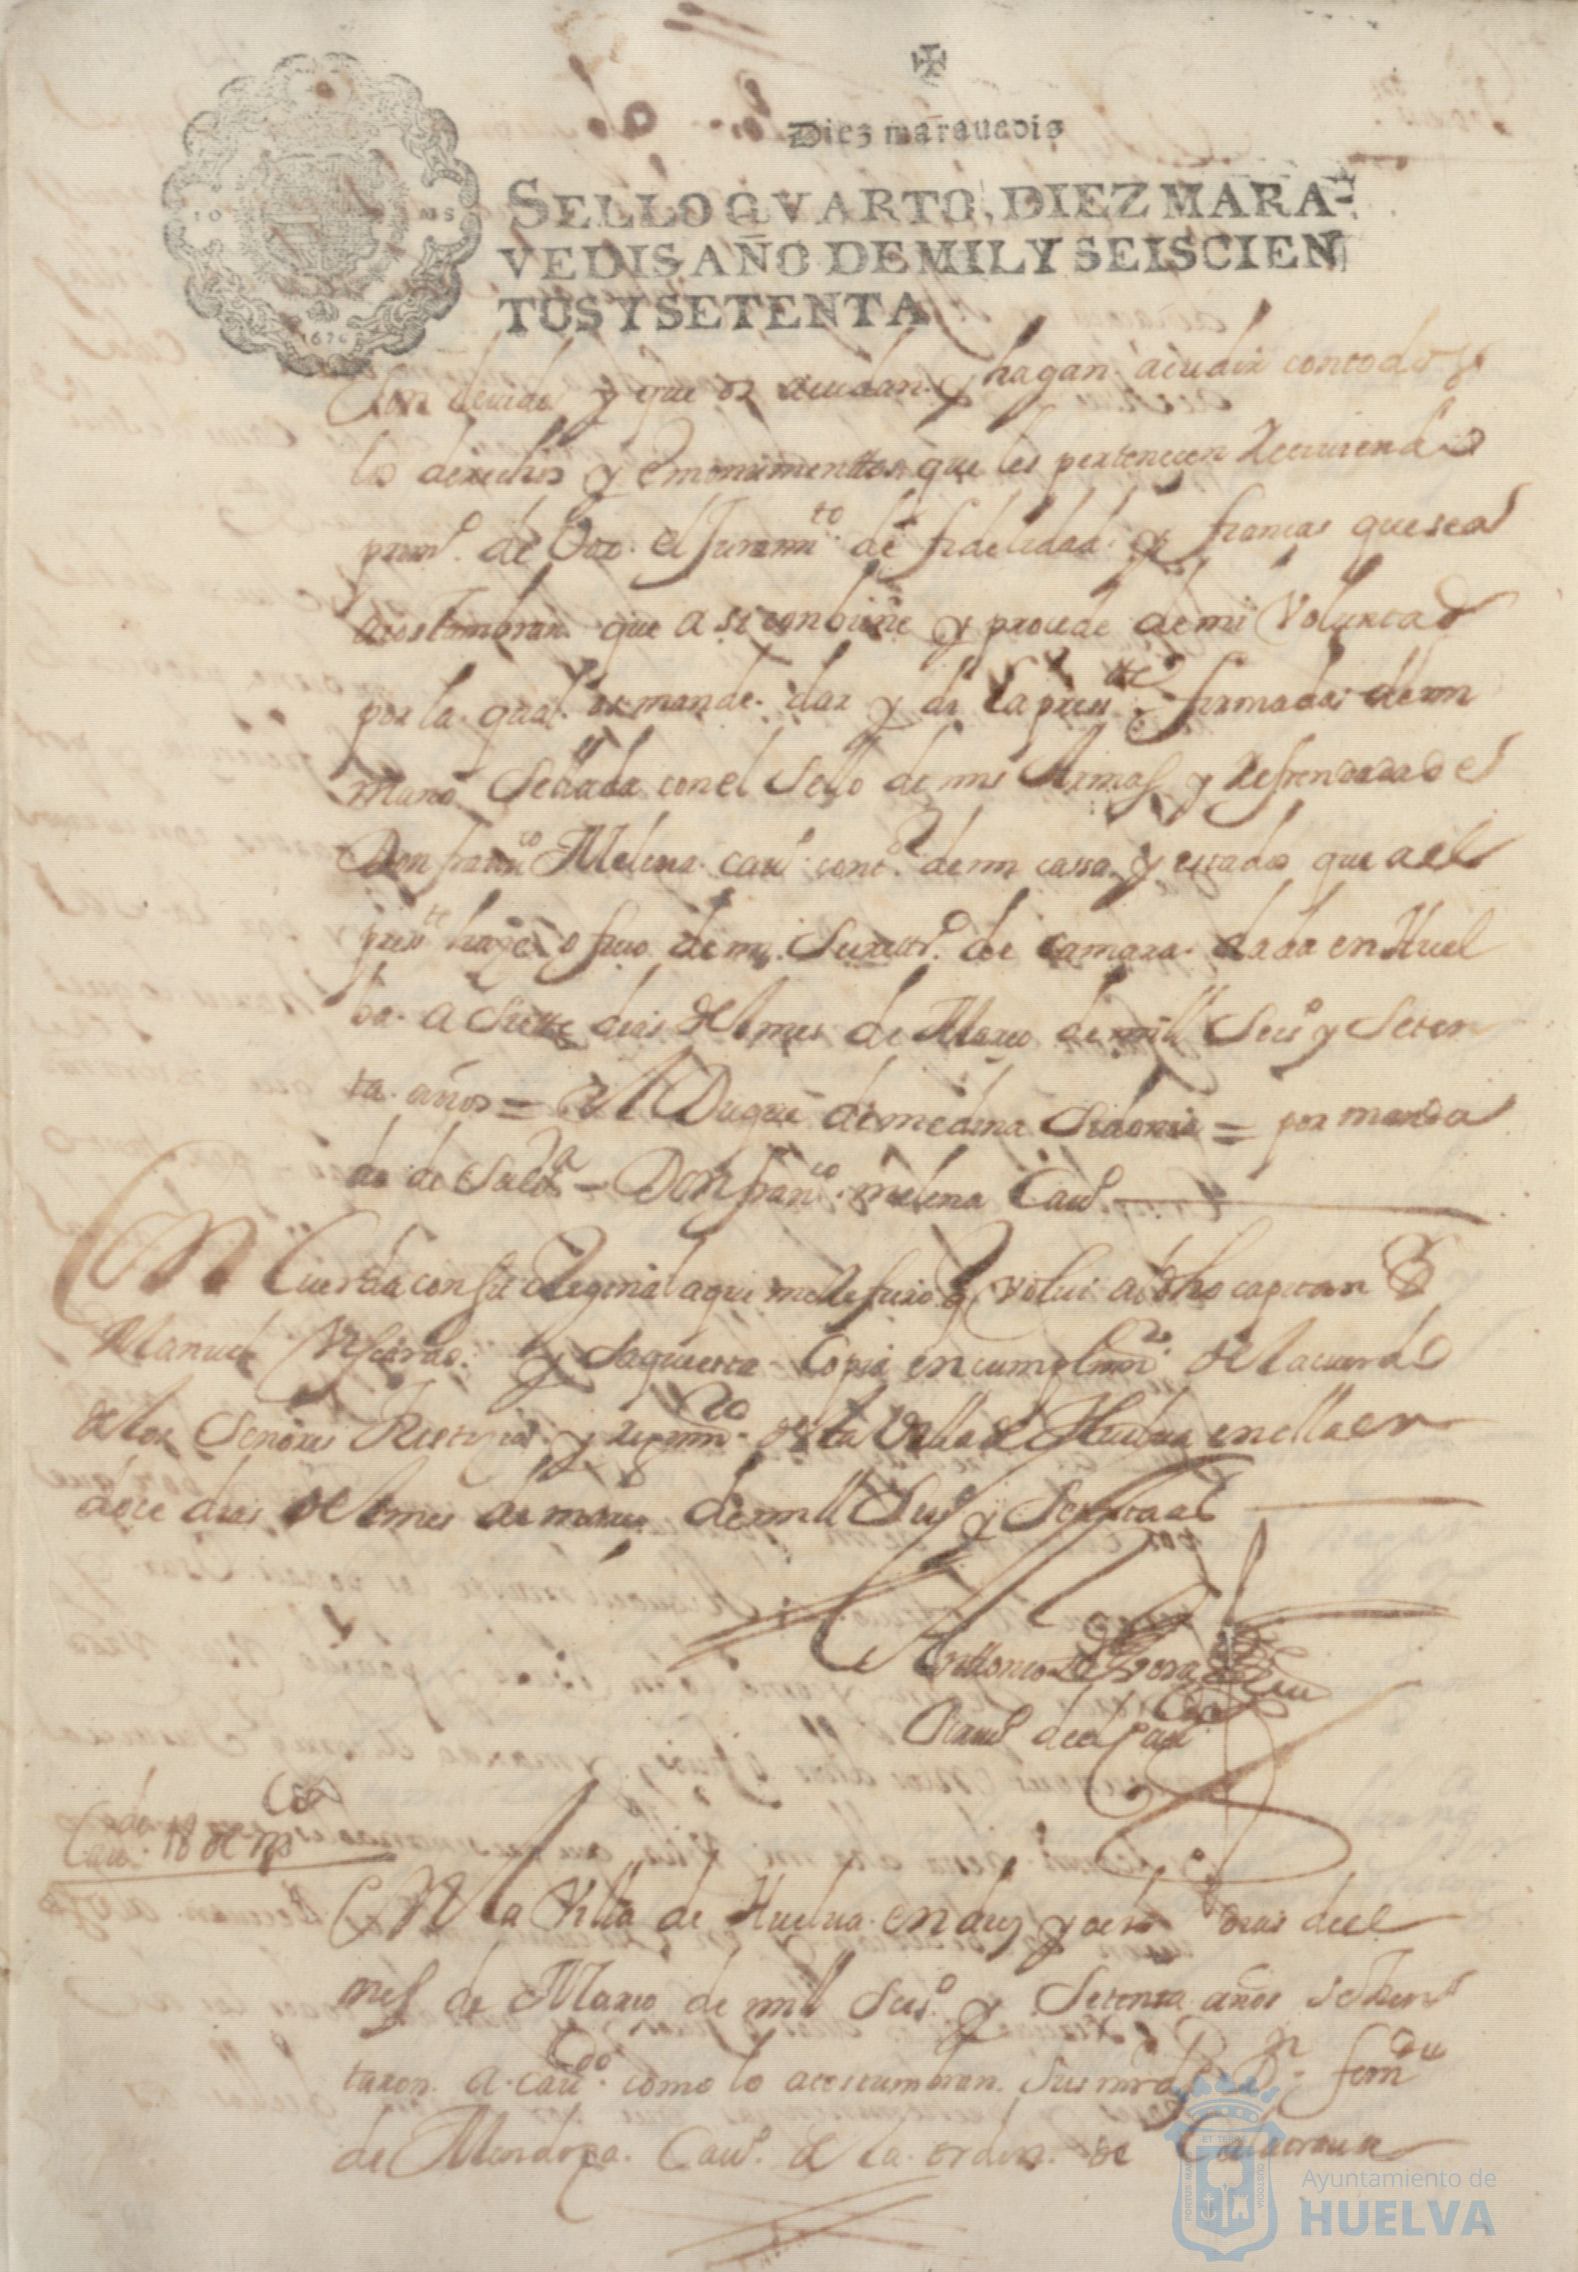 Diez marauadis
SELLO QVARTO, DIEZ MARA-
VEDIS AÑO DE MIL Y SEISCIEN
TOS Y SETENTA
10 MS
1670
son deuida y que os acudan y hagan acudir con todos
los derechos y emonumenttos que les pertenecen Receuiendo
prim.º de Vos el Juramto de fidelidad y fiancas que se a
acostumbran que asi combiene y procede de mi Voluntad
por la qual os mande dar y di la presste firmada de mi
mano Sellada con el Sello de mis Armas y Refrendada de
Don franco Melena cauº contº de mi cassa y estados que a el
presste haze ofiçio de mi Secrettº de camara dada en Huel
ba a Siette dias del mes de Março de mill Seisº y Seten
ta años = El Duque de medina Sidonia = por manda
do de Su Exª = Don franco melena Cauº
En Cuerda con su Original aqui me Refiero y volui a dho capitan D
Manuel y Saque esta Copia en cumplimto del acuerdo
de los Señores Justicia y Regimto desta Villa de Huelua en ella en
doce dias del mes de março de mill Seisº y Setenta as
Anttonio de
Escriuº del Cauº
Caudo 18 de mço
En la Villa de Huelua en diez y ocho dias deel
mes de Março de mil Seisº y Setenta años se Jun
taron a Caudo como lo acostumbran Sus mrds Dn ferndo
de Mendoza Cauº de la orden de Calatraua
PORTUS MARIS ET TERRAE CUSTODIA
Ayuntamiento de
HUELVA